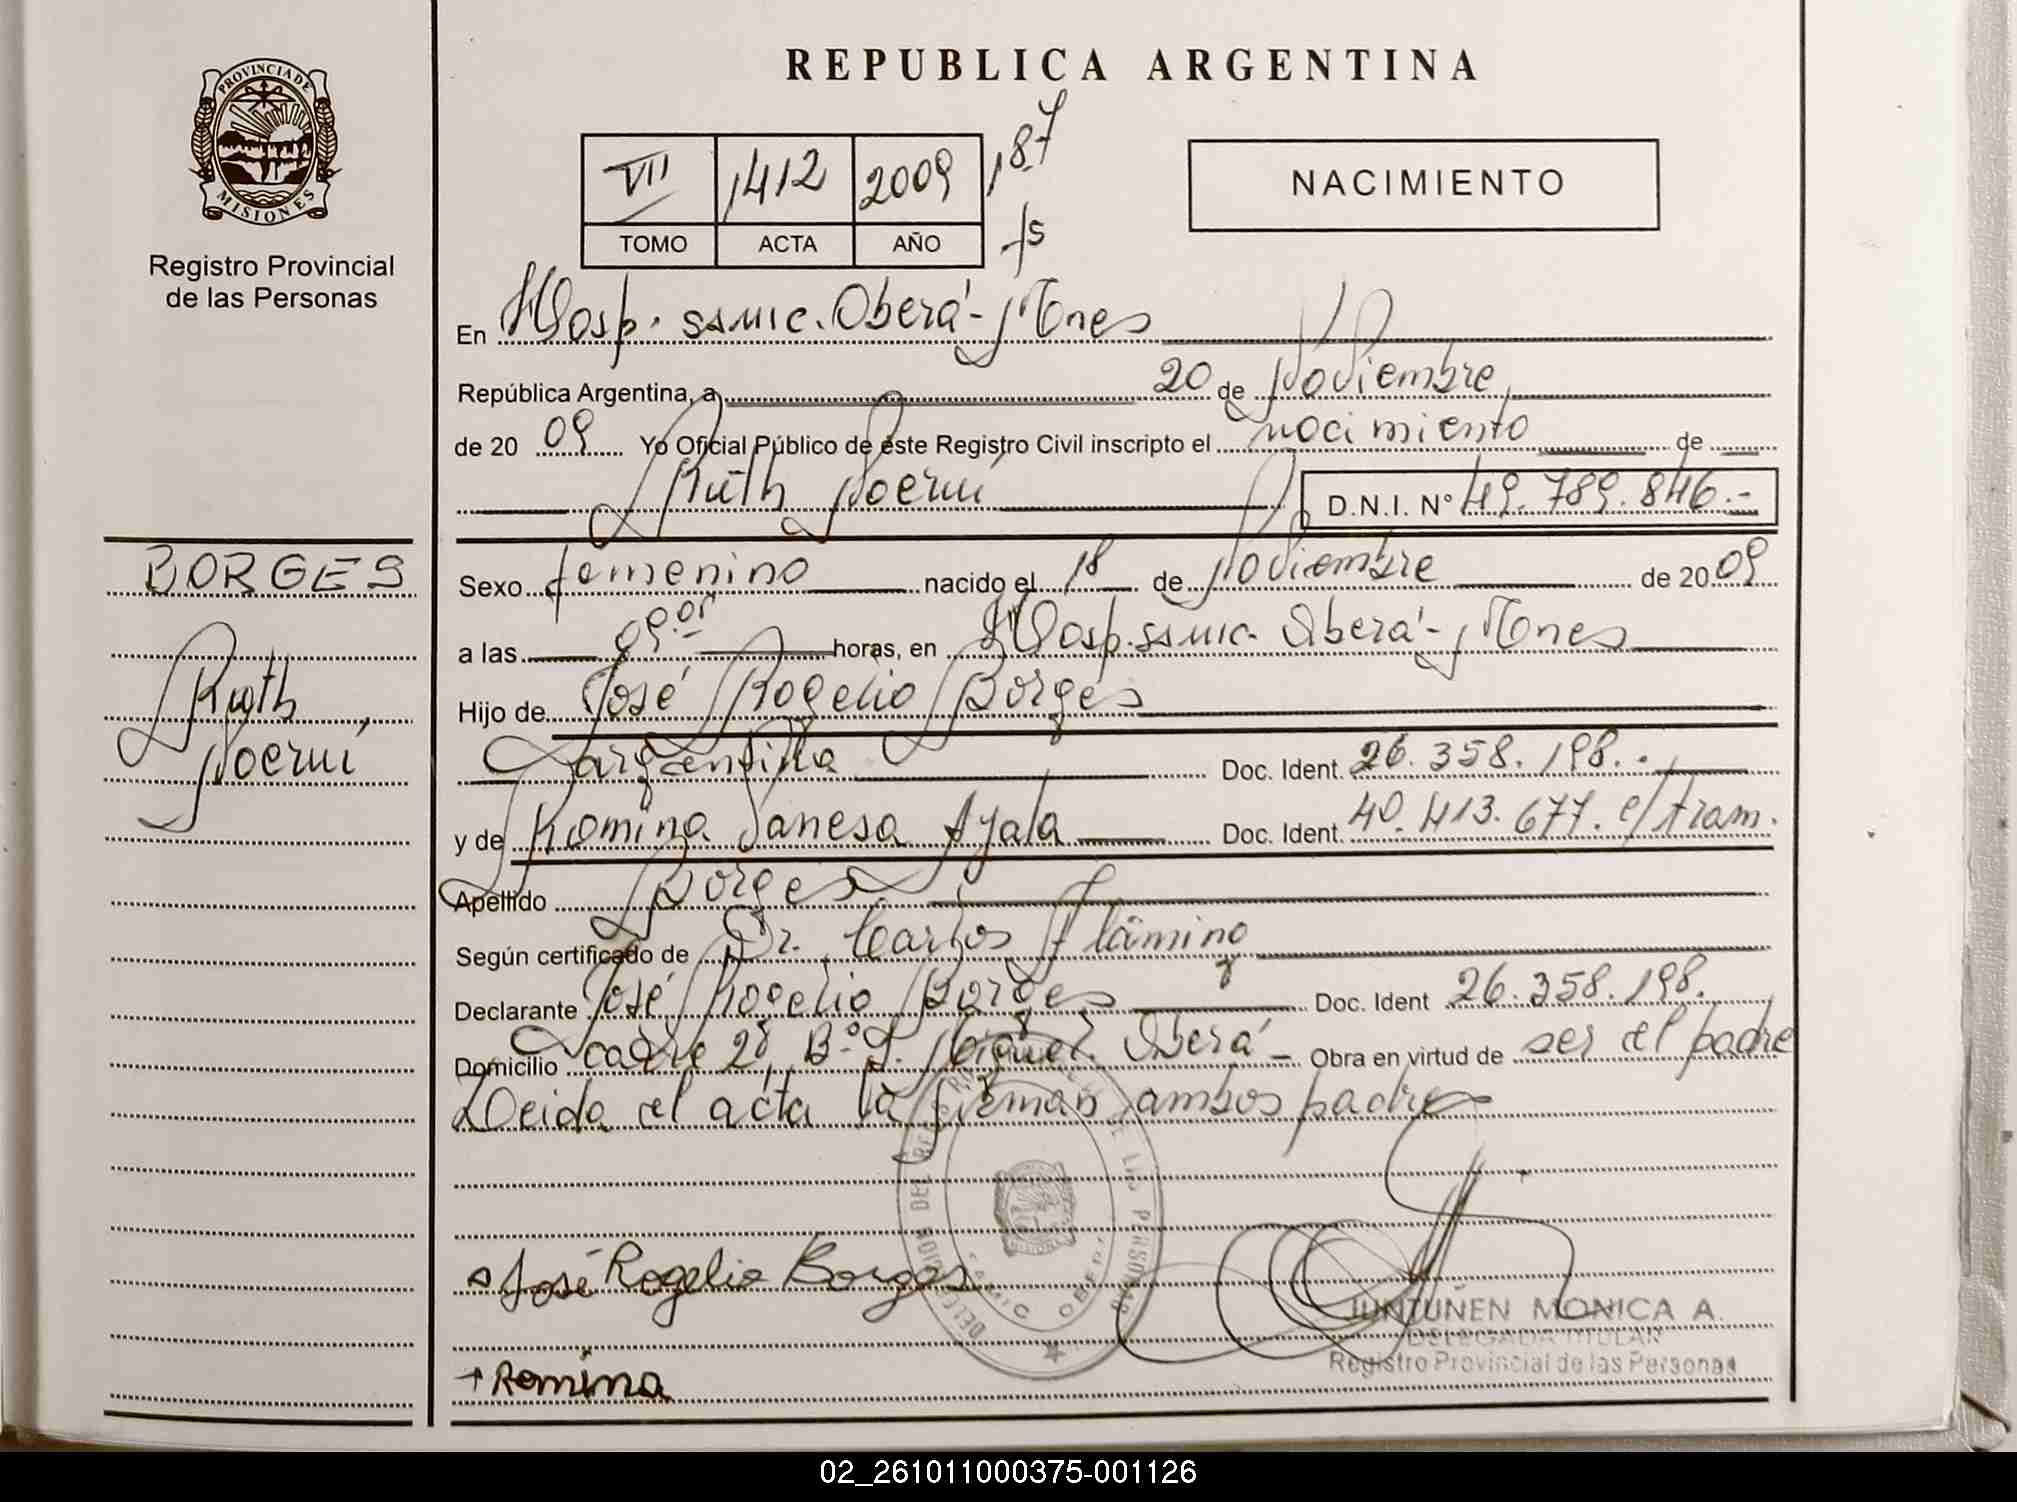 REPUBLICA ARGENTINA
PROVINCIA DE
MISIONES
Registro Provincial
de las Personas
VII 1412 2009 187
TOMO ACTA AÑO fs
NACIMIENTO
En Hosp. ssmic. Oberá - Mnes
República Argentina, a 20 de Noviembre
de 20 09 Yo Oficial Público de este Registro Civil inscripto el nacimiento de
Ruth Noemí D.N.I. Nº 49.789.846.-
BORGES
Ruth
Noemí
Sexo femenino nacido el 18 de Noviembre de 20 09
a las 09.05 horas, en Hosp. ssmic. Oberá - Mnes
Hijo de José Rogelio Borges
argentina Doc. Ident. 26.358.198.-
y de Romina Vanesa Ayala Doc. Ident. 40.413.677. e/tram.
Apellido Borges
Según certificado de Dr. Carlos Flamino
Declarante José Rogelio Borges Doc. Ident 26.358.198.
Domicilio calle 28, Bº S. Miguel. Oberá - Obra en virtud de ser el padre
Leida el acta la firman ambos padres
José Rogelio Borges
JUNTUÑEN MONICA A.
DELEGADA TITULAR
Registro Provincial de las Personas
Romina
02_261011000375-001126